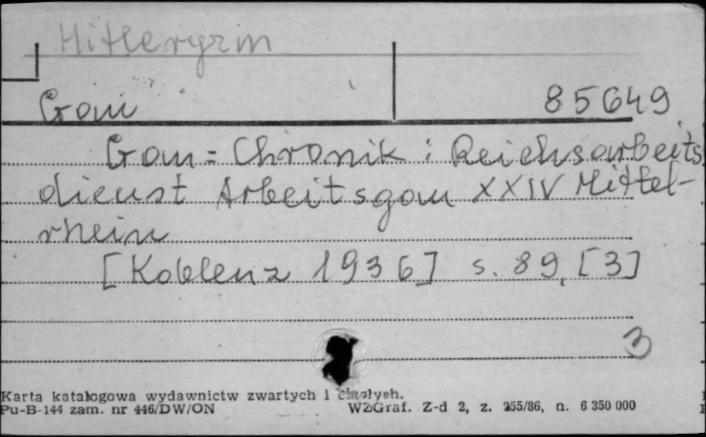 Hitleryzm
Gau
85649
Gau = Chronik : Reichsarbeits
dienst Arbeitsgau XXIV Mittel-
rhein
[Koblenz 1936] s. 89, [3]
3
Karta katalogowa wydawnictw zwartych i ciągłych.
Pu-B-144 zam. nr 446/DW/ON WZGraf. Z-d 2, z. 255/86, n. 6 350 000